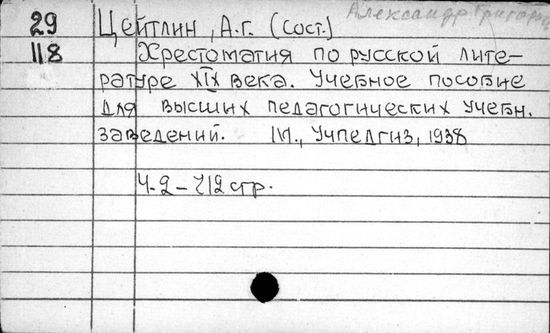 29 Цейтлин, А.Г. (сост.) Александр Григор
118 Хрестоматия по русской лите-
ратуре XIX века. Учебное пособие
для высших педагогических учебн.
заведений. М., Учпедгиз, 1938
Ч. 2 – 712 стр.